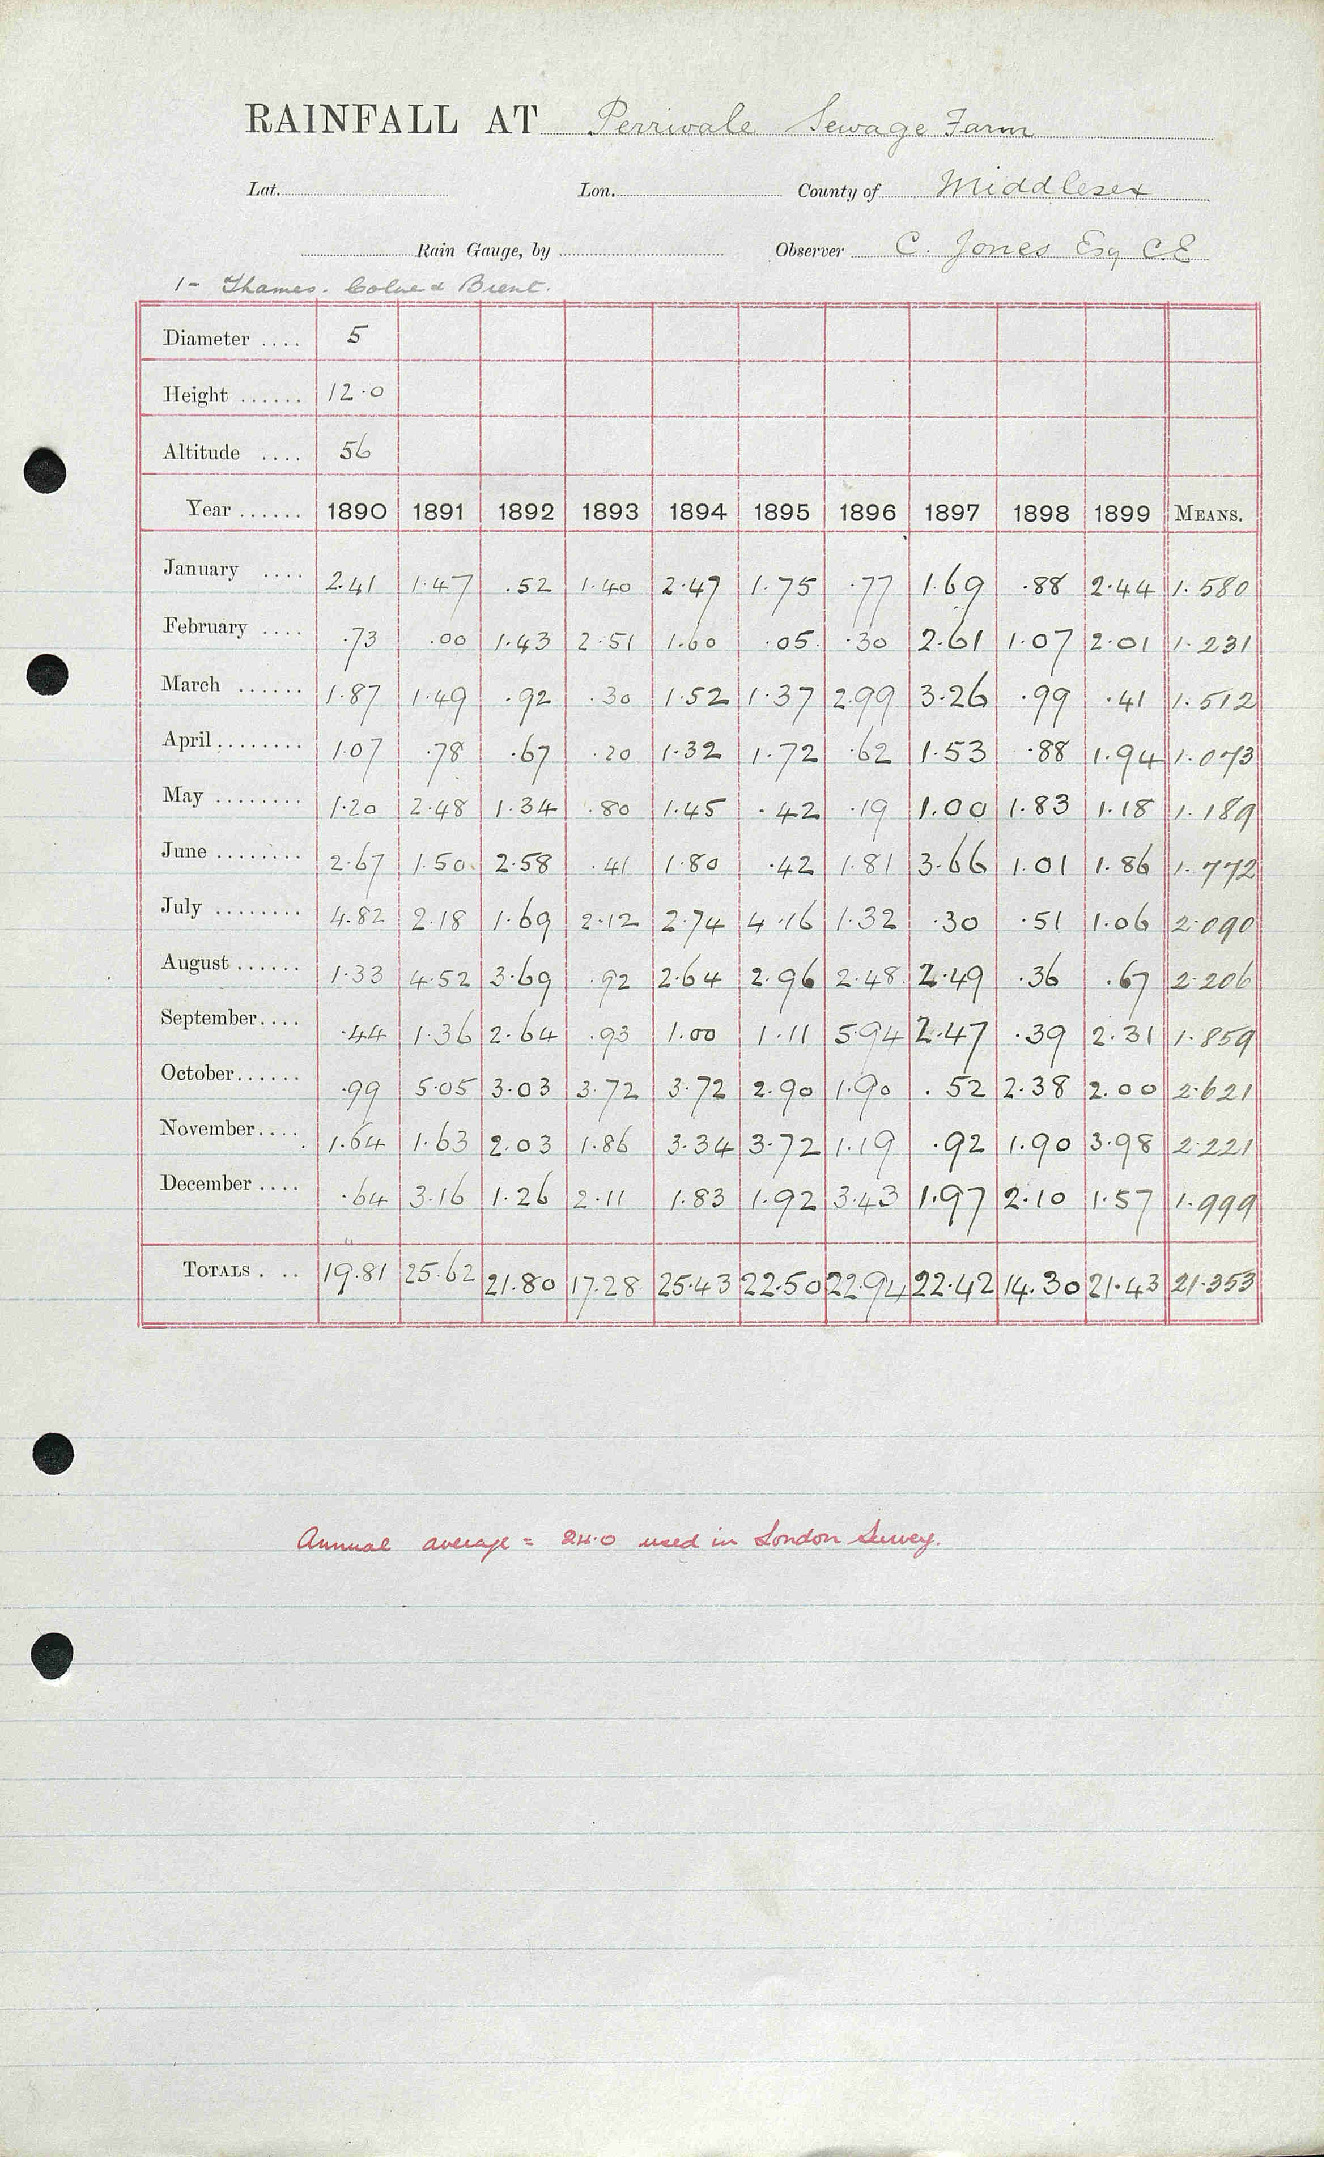 RAINFALL AT Perrivale Sewage Farm
Lat. Lon. County of Middlesex
Rain Gauge, by Observer C. Jones Esq C.E
1- Thames. Colne & Brent.
Diameter .... 5
Height ...... 12.0
Altitude .... 56
Year ...... 1890 1891 1892 1893 1894 1895 1896 1897 1898 1899 MEANS.
January .... 2.41 1.47 .52 1.40 2.47 1.75 .77 1.69 .88 2.44 1.580
February .... .73 .00 1.43 2.51 1.60 .05 .30 2.61 1.07 2.01 1.231
March ...... 1.87 1.49 .92 .30 1.52 1.37 2.99 3.26 .99 .41 1.512
April ........ 1.07 .78 .67 .20 1.32 1.72 .62 1.53 .88 1.94 1.073
May ........ 1.20 2.48 1.34 .80 1.45 .42 .19 1.00 1.83 1.18 1.189
June ........ 2.67 1.50 2.58 .41 1.80 .42 1.81 3.66 1.01 1.86 1.772
July ........ 4.82 2.18 1.69 2.12 2.74 4.16 1.32 .30 .51 1.06 2.090
August ...... 1.33 4.52 3.69 .92 2.64 2.96 2.48 2.49 .36 .67 2.206
September .... .44 1.36 2.64 .93 1.00 1.11 5.94 2.47 .39 2.31 1.859
October ...... .99 5.05 3.03 3.72 3.72 2.90 1.90 .52 2.38 2.00 2.621
November .... 1.64 1.63 2.03 1.86 3.34 3.72 1.19 .92 1.90 3.98 2.221
December .... .64 3.16 1.26 2.11 1.83 1.92 3.43 1.97 2.10 1.57 1.999
TOTALS . .. 19.81 25.62 21.80 17.28 25.43 22.50 22.94 22.42 14.30 21.43 21.353
Annual average = 24.0 used in London Survey.